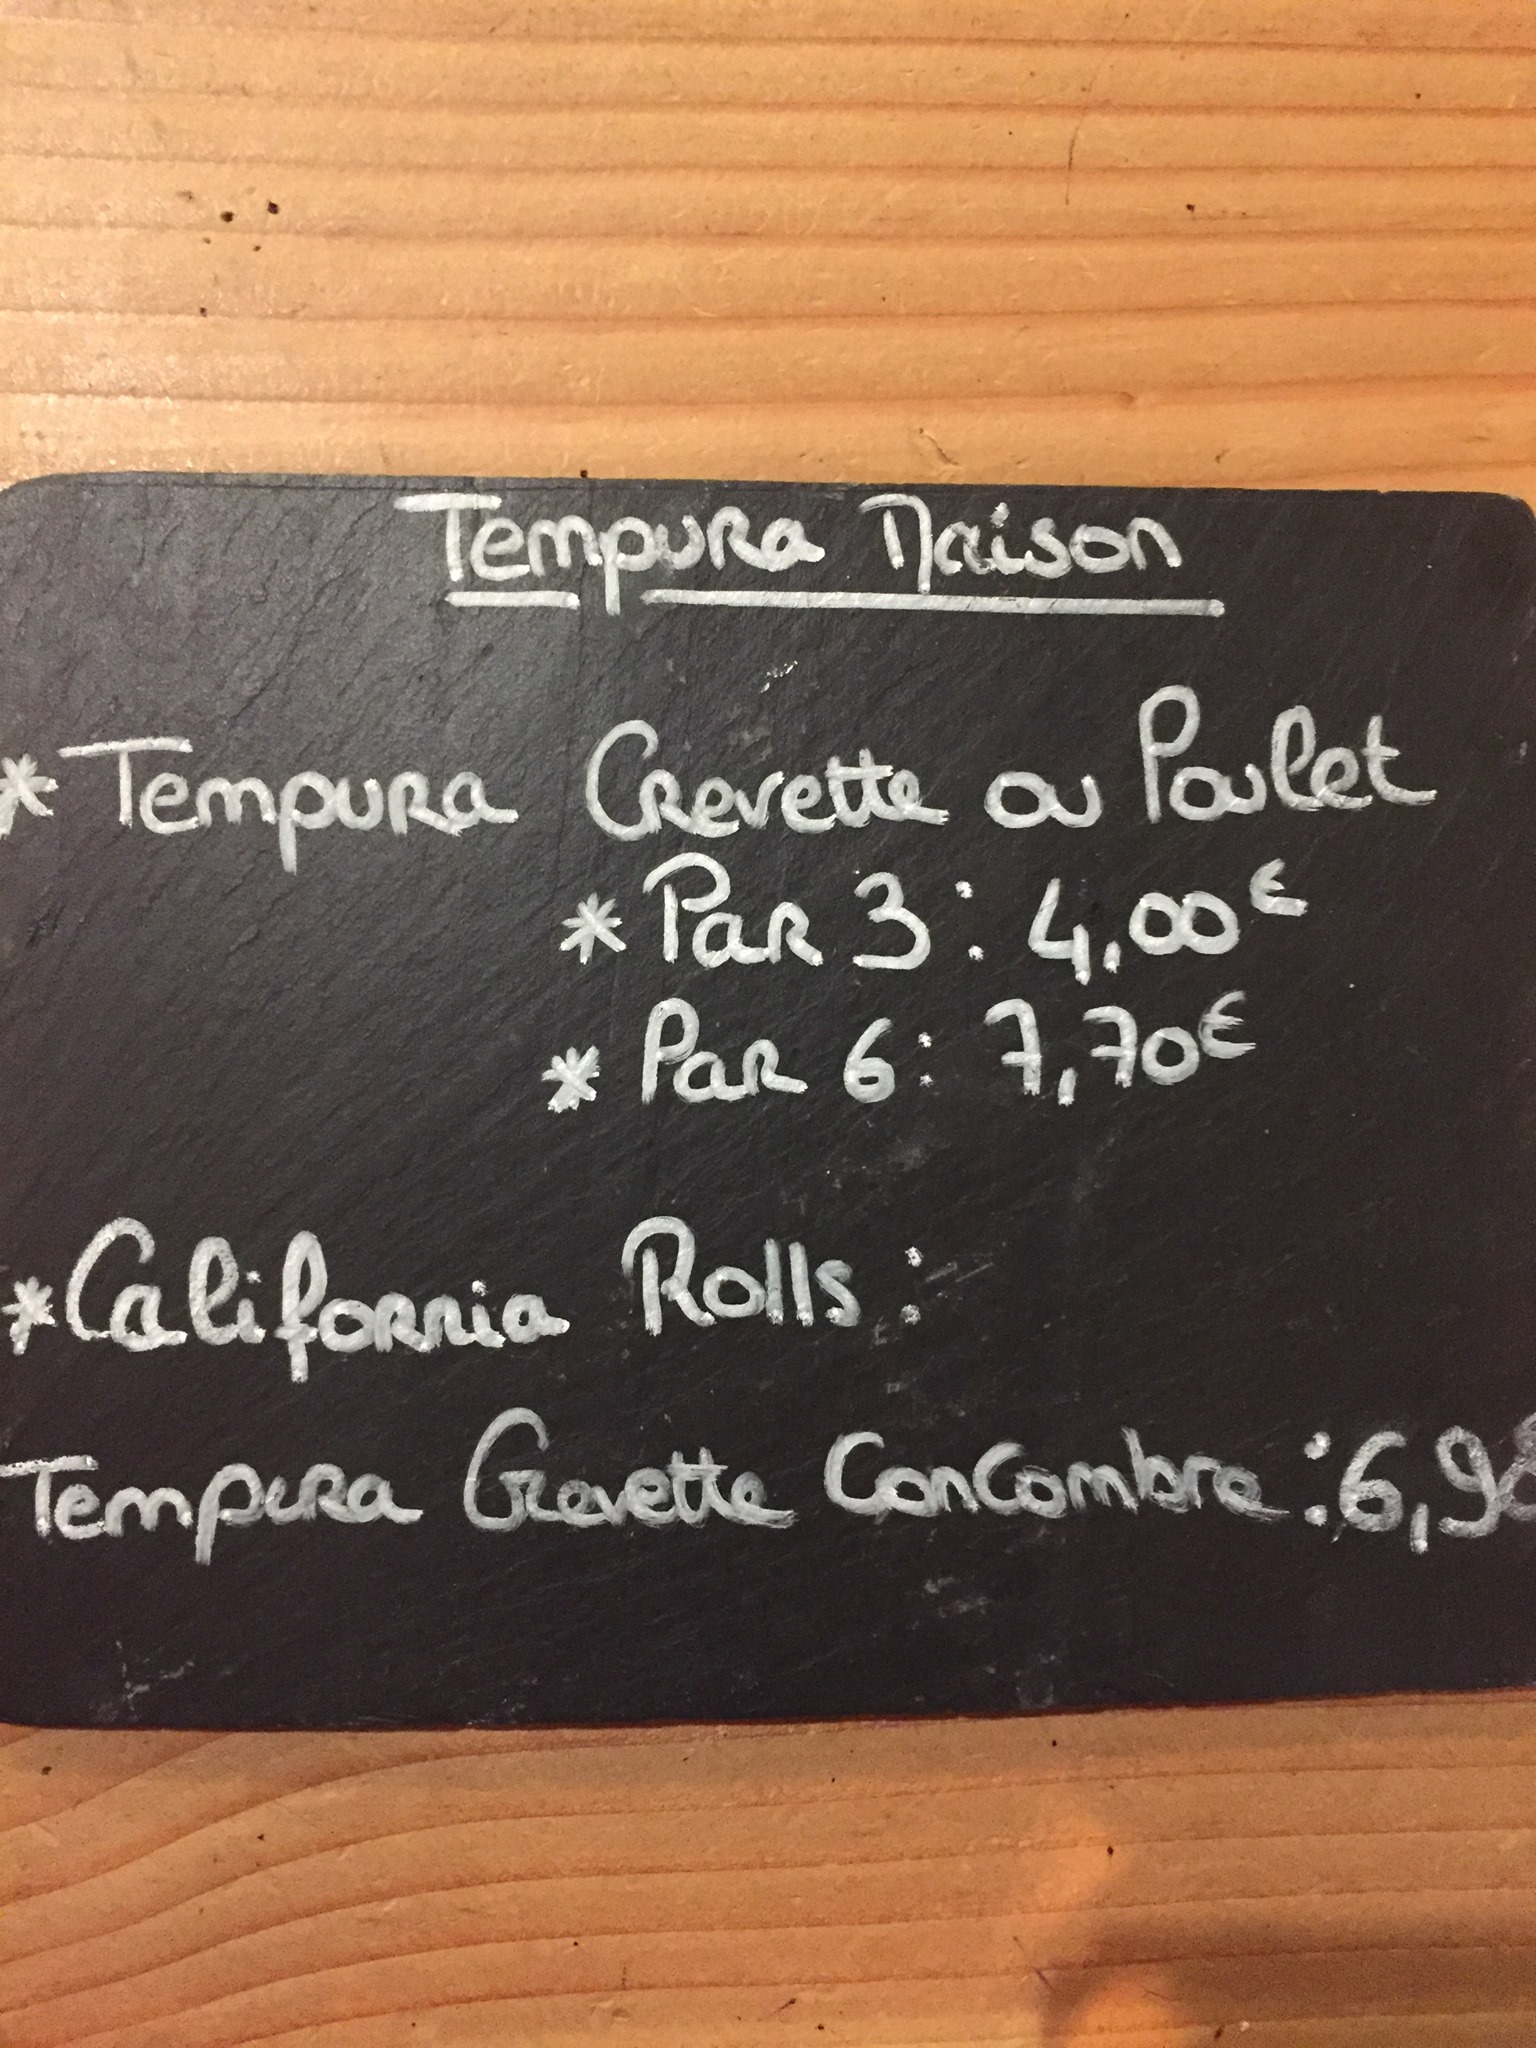 Tempura Maison
* Tempura Crevette ou Poulet
* Par 3 : 4,00€
* Par 6 : 7,70€
* California Rolls :
Tempura Crevette Concombre : 6,90